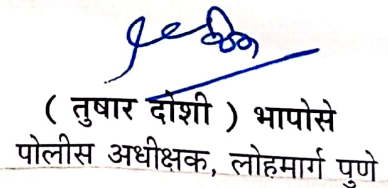 ( तुषार दोशी ) भापोसे
पोलीस अधीक्षक, लोहमार्ग पुणे